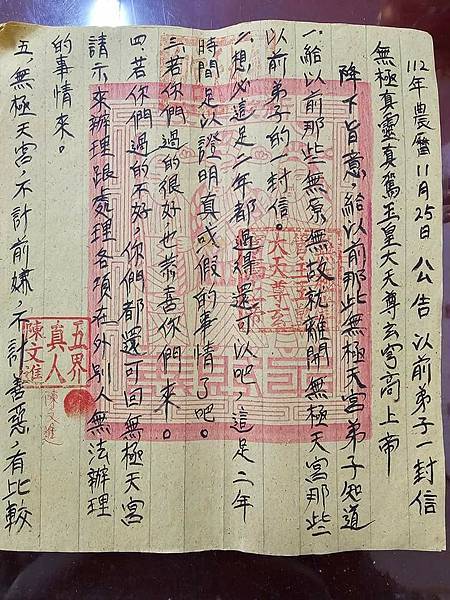 112年農曆11月25日 公告 以前弟子一封信
無極真靈真駕玉皇大天尊玄穹高上帝
降下旨意，給以前那些無極天宮弟子知道
一.給以前那些無原無故就離開無極天宮那些
以前弟子的一封信。
二.想必這足二年都過得還可以吧，這足二年
時間足以證明真或假的事情了吧。
三.若你們過的很好也恭喜你們來。
四.若你們過的不好，你們都還可回無極天宮
請示來辦理跟處理各項在外別人無法辦理
的事情來。
五.無極天宮，不計前嫌，不計善惡，有比較
大天尊玄
五界
真人
陳文進
陳文進